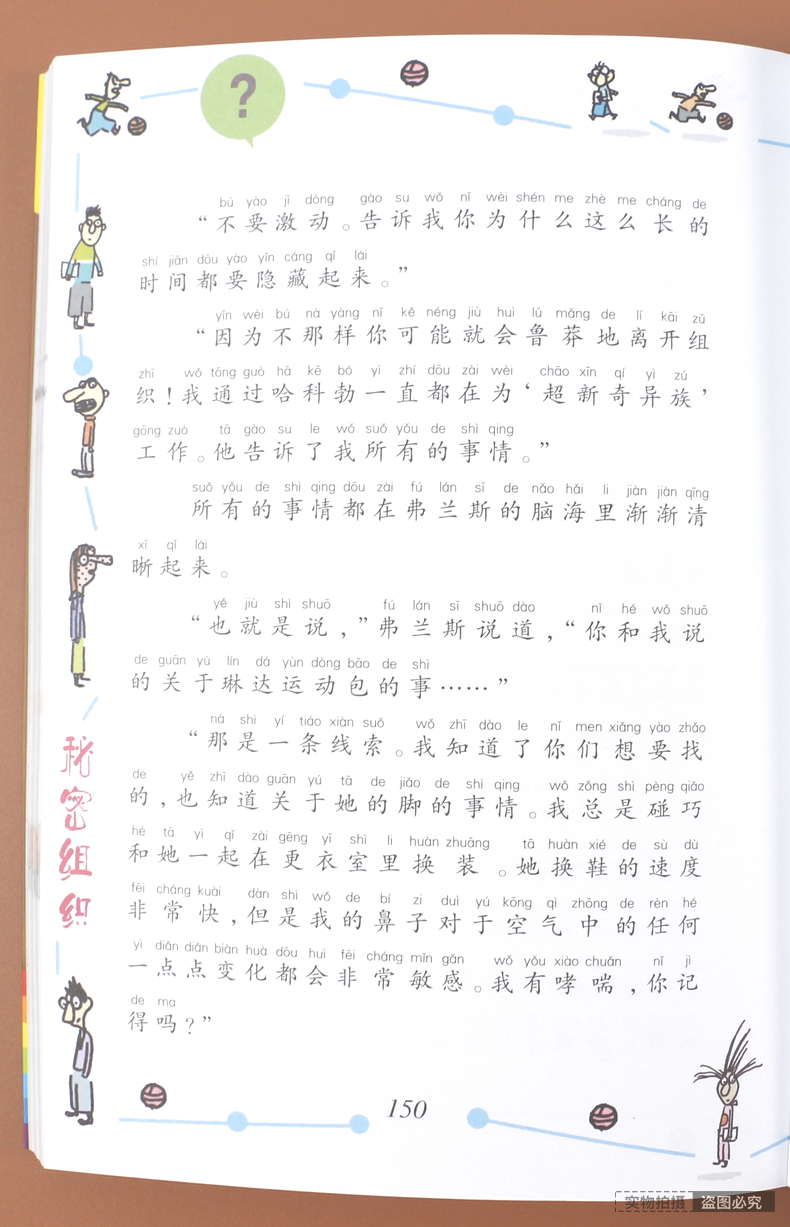 ?
bú yào jī dòng gào su wǒ nǐ wèi shén me zhè me cháng de
“不要激动。告诉我你为什么这么长的
shí jiān dōu yào yǐn cáng qǐ lái
时间都要隐藏起来。”
yīn wèi bú nà yàng nǐ kě néng jiù huì lǔ mǎng de lí kāi zǔ
“因为不那样你可能就会鲁莽地离开组
zhī wǒ tōng guò hā kē bó yì zhí dōu zài wèi chāo xīn qí yì zú
织！我通过哈科勃一直都在为‘超新奇异族’
gōng zuò tā gào su le wǒ suǒ yǒu de shì qing
工作。他告诉了我所有的事情。”
suǒ yǒu de shì qing dōu zài fú lán sī de nǎo hǎi li jiàn jiàn qīng
所有的事情都在弗兰斯的脑海里渐渐清
xī qǐ lái
晰起来。
yě jiù shì shuō fú lán sī shuō dào nǐ hé wǒ shuō
“也就是说，”弗兰斯说道，“你和我说
de guān yú lín dá yùn dòng bāo de shì
的关于琳达运动包的事……”
nà shì yí tiáo xiàn suǒ wǒ zhī dào le nǐ men xiǎng yào zhǎo
“那是一条线索。我知道了你们想要找
de yě zhī dào guān yú tā de jiǎo de shì qing wǒ zǒng shì pèng qiǎo
的，也知道关于她的脚的事情。我总是碰巧
hé tā yì qǐ zài gēng yī shì li huàn zhuāng tā huàn xié de sù dù
和她一起在更衣室里换装。她换鞋的速度
fēi cháng kuài dàn shì wǒ de bí zi duì yú kōng qì zhōng de rèn hé
非常快，但是我的鼻子对于空气中的任何
yì diǎn diǎn biàn huà dōu huì fēi cháng mǐn gǎn wǒ yǒu xiào chuǎn nǐ jì
一点点变化都会非常敏感。我有哮喘，你记
de ma
得吗？”
秘密组织
150
实物拍摄 盗图必究